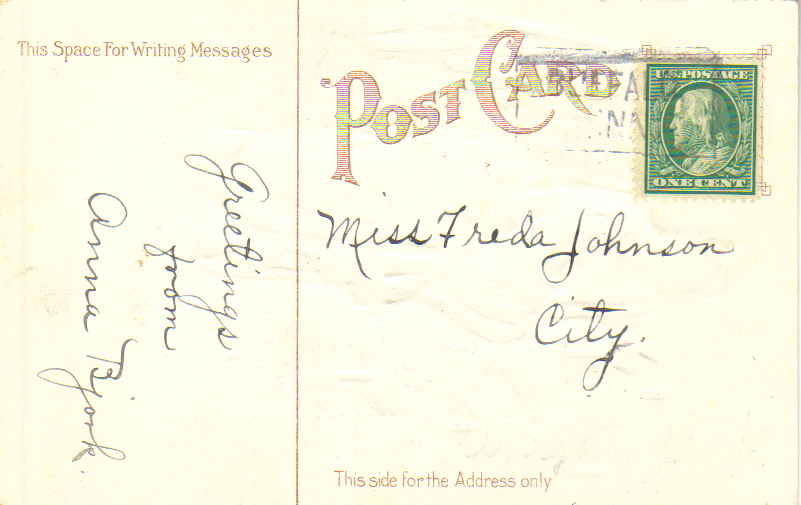 This Space For Writing Messages
Greetings
from
Anna Bjork.
POST CARD
U.S. POSTAGE
ONE CENT
Miss Freda Johnson
City.
This side for the Address only